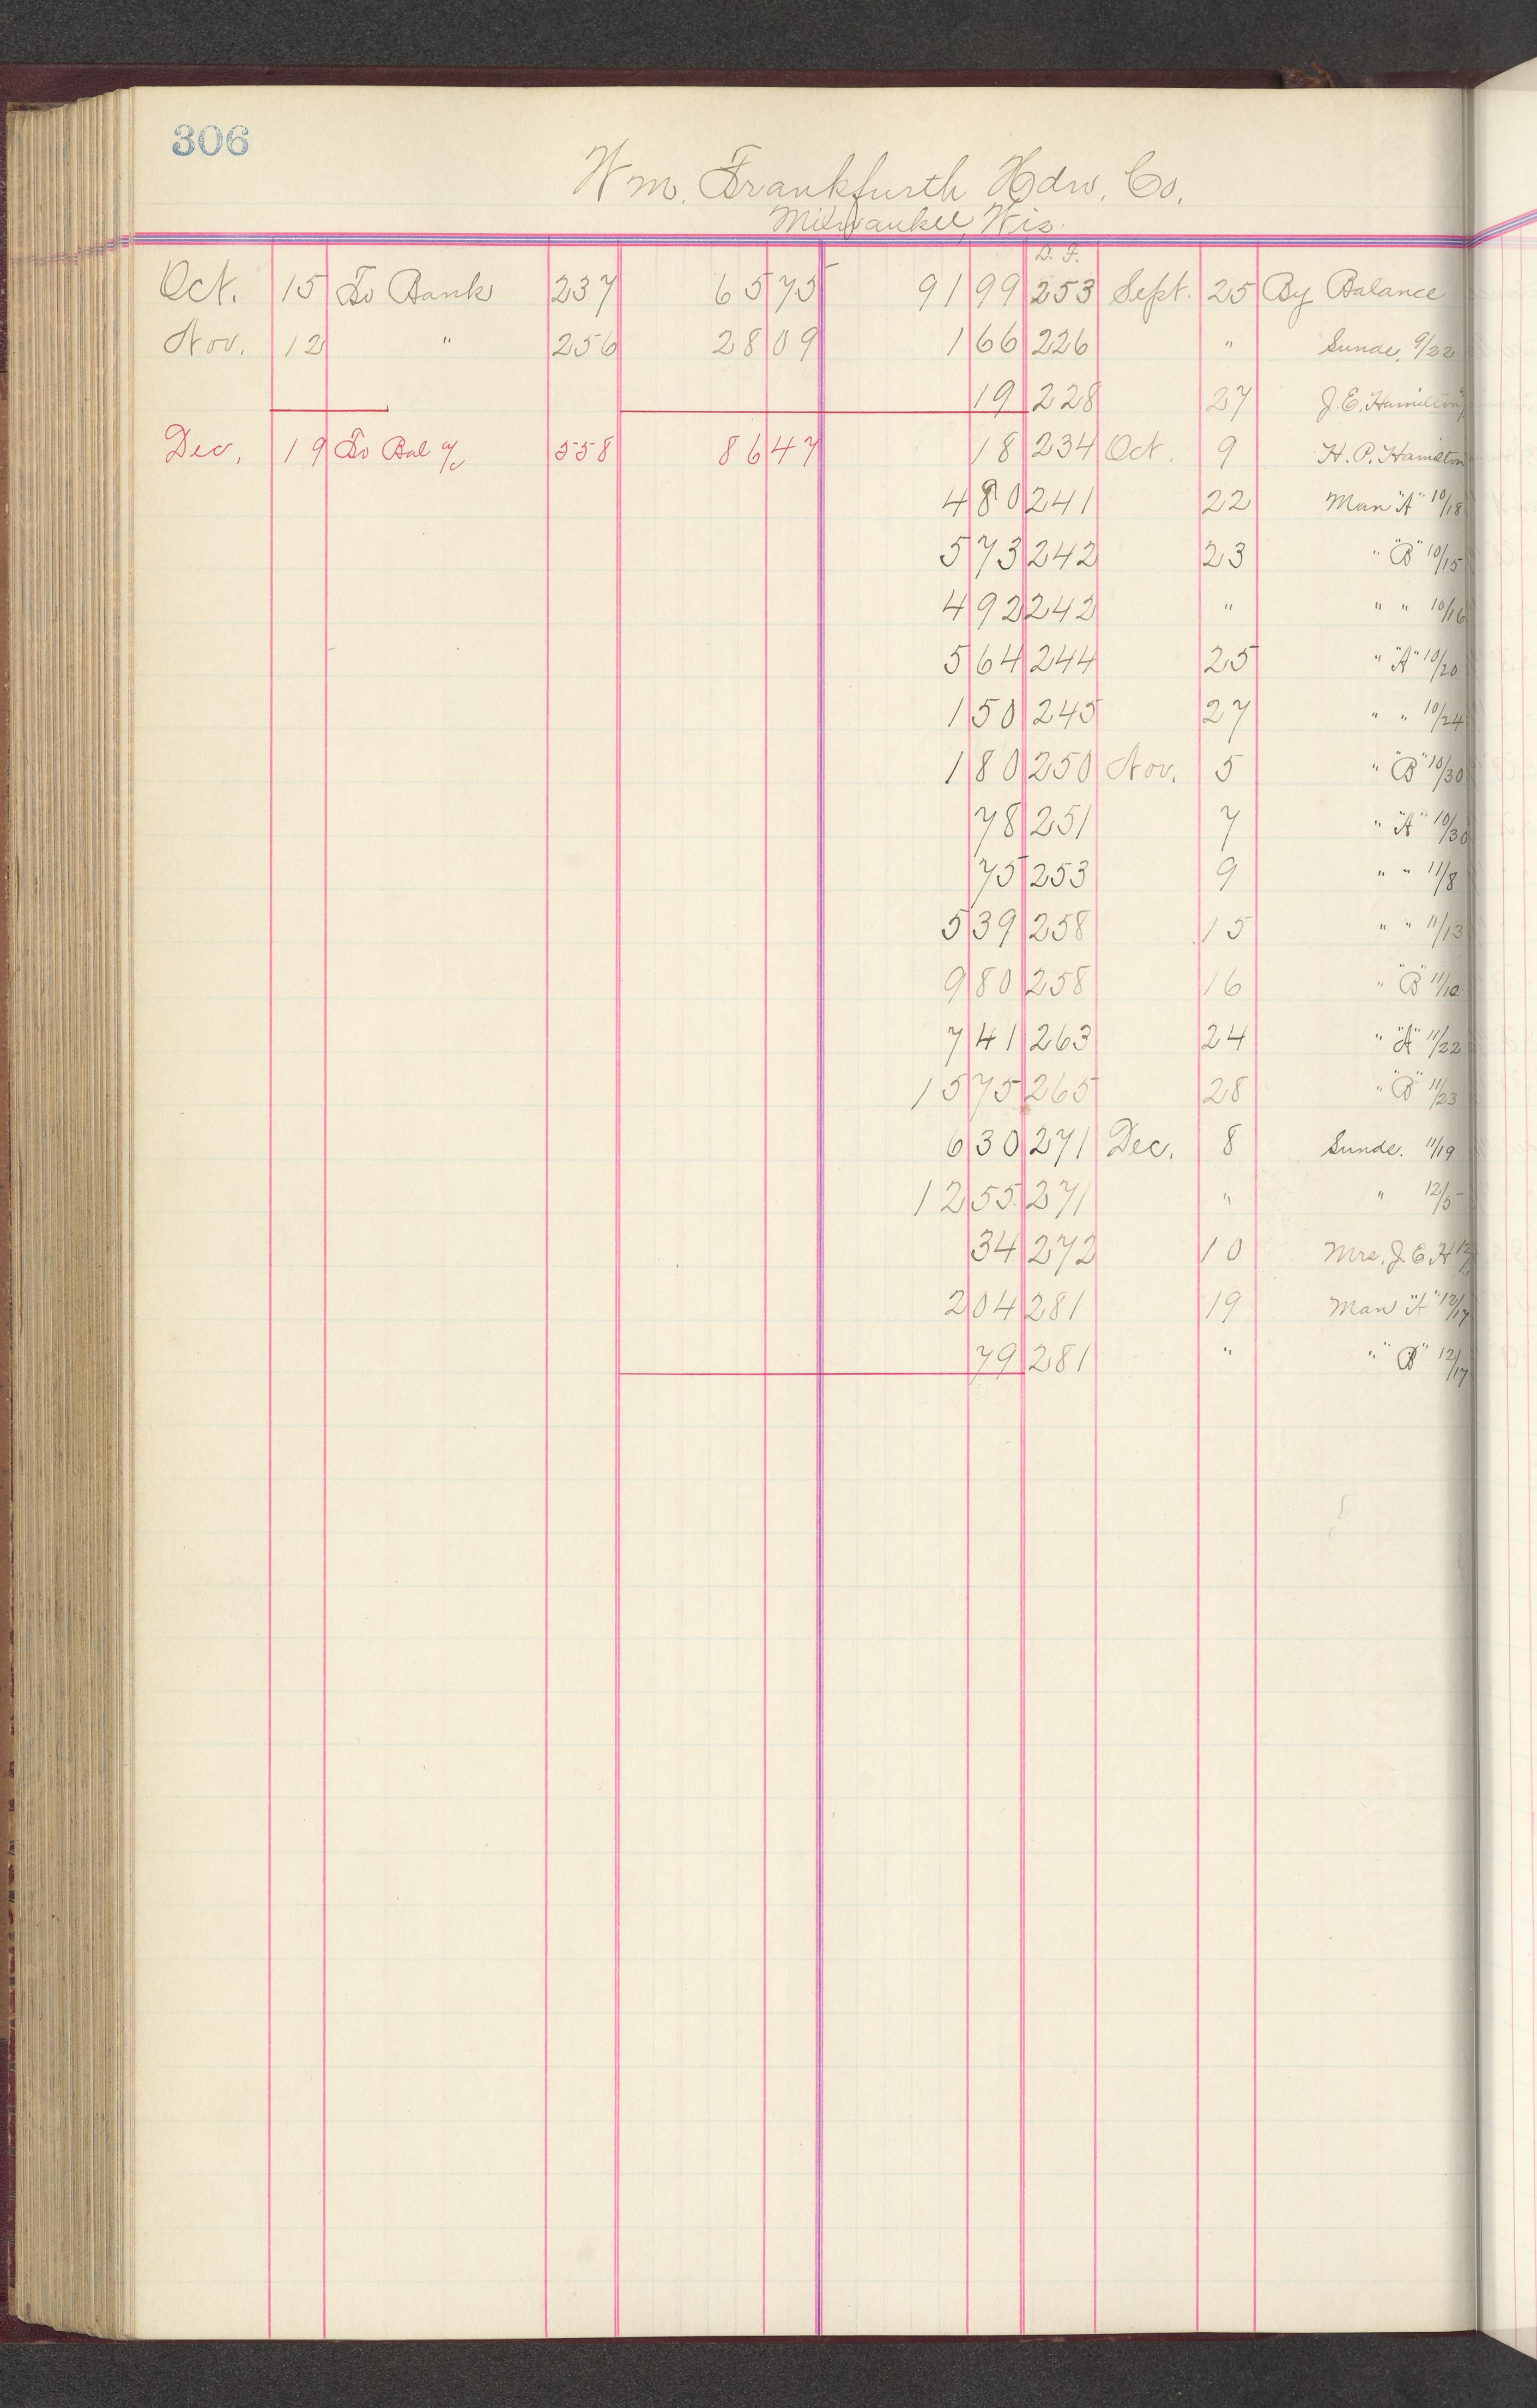 306
Wm. Frankfurth Hdw. Co.
Milwaukee, Wis.
D. F.
Oct. 15 To Bank 237 65 75 91 99 253 Sept. 25 By Balance
Nov. 12 " 256 28 09 1 66 226 " Sunde, 9/22
19 228 27 J. E. Hamilton
Dec. 19 To Bal a/c 558 86 47 18 234 Oct. 9 H. P. Hamilton
4 80 241 22 Man "A" 10/18
5 73 242 23 " "B" 10/15
4 92 242 " " " 10/16
5 64 244 25 " "A" 10/20
1 50 245 27 " " 10/24
1 80 250 Nov. 5 " "B" 10/30
78 251 7 " "A" 10/30
75 253 9 " " 11/8
5 39 258 15 " " 11/13
9 80 258 16 " "B" 11/10
7 41 263 24 " "A" 11/22
15 75 265 28 " "B" 11/23
6 30 271 Dec. 8 Sunde. 11/19
12 55 271 " " 12/5
34 272 10 Mrs. J. E. H
2 04 281 19 Man "A" 12/17
79 281 " " "B" 12/17